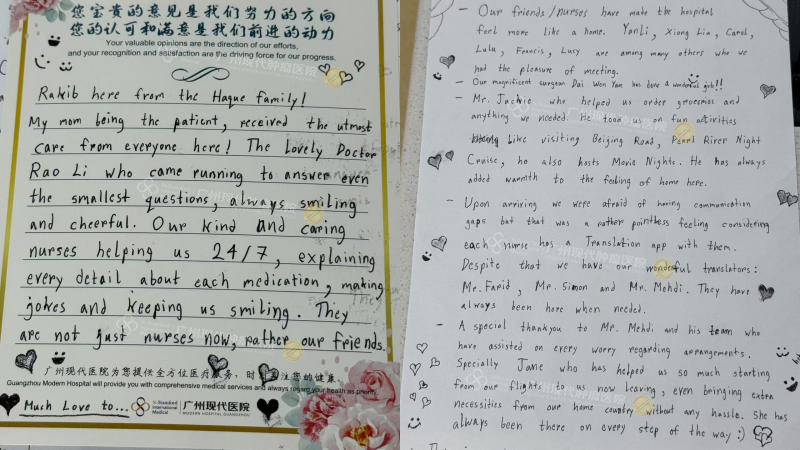 您宝贵的意见是我们努力的方向
您的认可和满意是我们前进的动力
Your valuable opinions are the direction of our efforts,
and your recognition and satisfaction are the driving force for our progress.
Rakib here from the Haque family!
My mom being the patient, received the utmost
care from everyone here! The Lovely Doctor
Rao Li who came running to answer even
the smallest questions, always smiling
and cheerful. Our kind and caring
nurses helping us 24/7, explaining
every detail about each medication, making
jokes and keeping us smiling. They
are not just nurses now, rather our friends.
广州现代医院为您提供全方位医疗服务，时关注您的健康
Guangzhou Modern Hospital will provide you with comprehensive medical services and always regard your health as priority.
Much Love to...
St.Stamford International Medical
广州现代医院
MODERN HOSPITAL GUANGZHOU
- Our friends/nurses have made the hospital
feel more like a home. YanLi, Xiong Lia, Carol,
Lulu, Francis, Lucy are among many others who we
had the pleasure of meeting.
- Our magnificent surgeon Dai Wen Yan has done a wonderful job!!
- Mr. Jamie who helped us order groceries and
anything we needed. He took us on fun activities
like visiting Beijing Road, Pearl River Night
Cruise, he also hosts Movie Nights. He has always
added warmth to the feeling of home here.
- Upon arriving we were afraid of having communication
gaps but that was a rather pointless feeling considering
each nurse has a Translation app with them.
Despite that we have our wonderful translators:
Mr. Farid, Mr. Simon and Mr. Mehdi. They have
always been here when needed.
- A special thankyou to Mr. Mehdi and his team who
have assisted on every worry regarding arrangements.
Specially Jane who has helped us so much starting
from our flights to us now leaving, even bringing extra
necessities from our home country without any hassle. She has
always been there on every step of the way :)
广州现代肿瘤医院